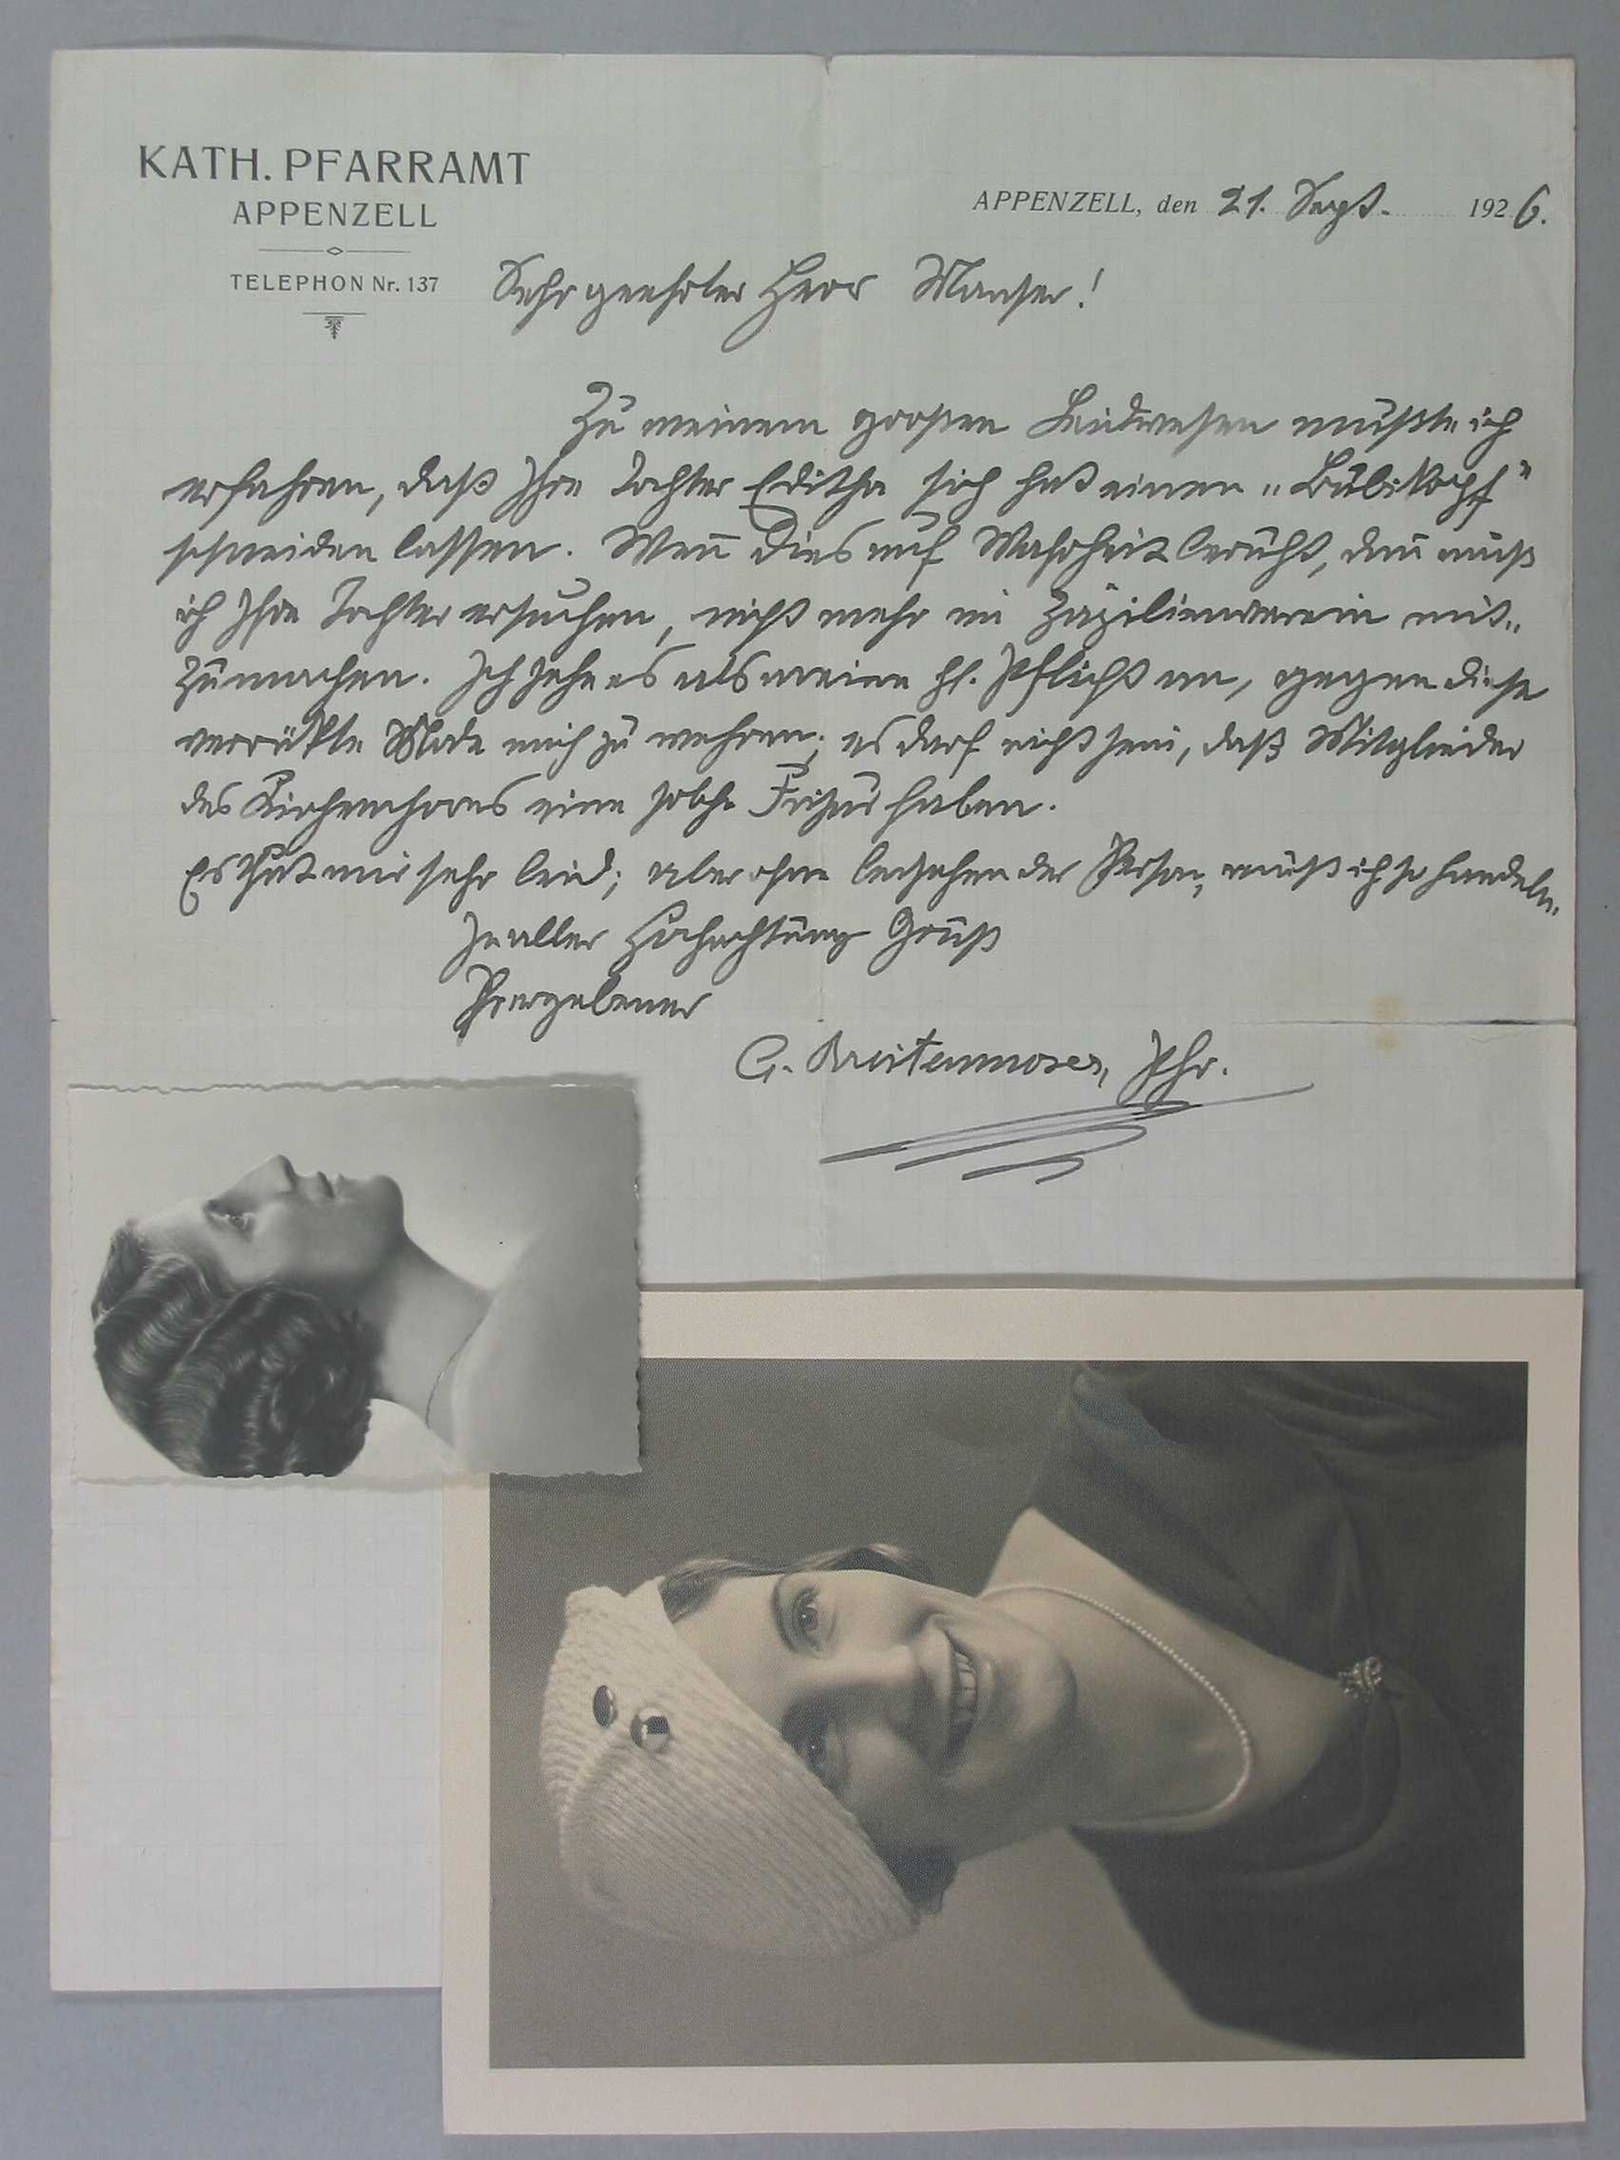 KATH. PFARRAMT
APPENZELL
TELEPHON Nr. 137
APPENZELL, den 21. Sept. 1926.
Sehr geehrter Herr Manser!
Zu meinem großen Leidwesen mußte ich
erfahren, daß Ihre Tochter Editha sich hat einen „Bubikopf"
schneiden lassen. Wenn dies auf Wahrheit beruht, dann muß
ich Ihre Tochter ersuchen, nicht mehr im Zäzilienverein mit-
zumachen. Ich sehe es als meine hl. Pflicht an, gegen diese
verrückte Mode mich zu wehren; es darf nicht sein, daß Mitglieder
des Kirchenchores eine solche Frisur haben.
Es thut mir sehr leid; aber ohne Ansehen der Person, muß ich so handeln.
In aller Hochachtung Grüßt
Ihr ergebener
C. Breitenmoser, Pfr.